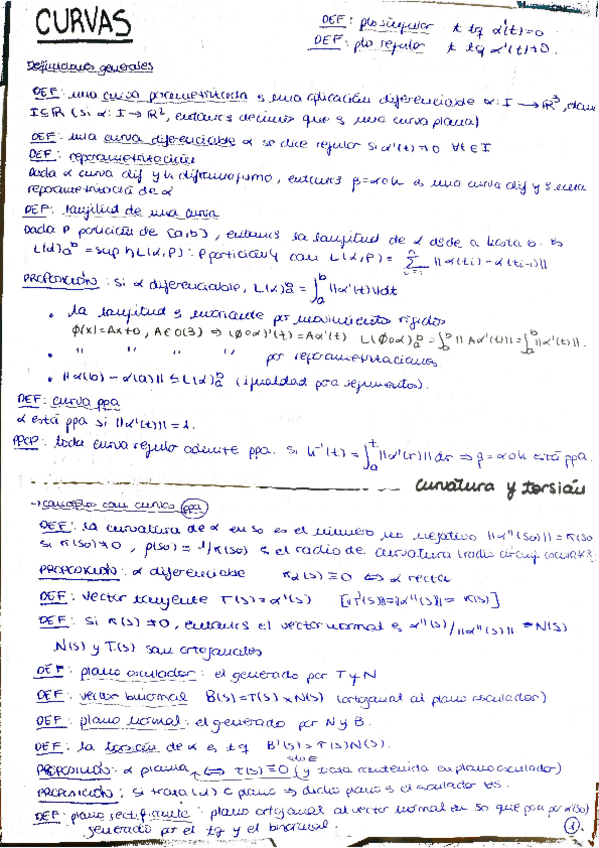 CURVAS
DEF: pto singular t tq α'(t)=0
DEF: pto regular t tq α'(t)≠0.
Definiciones generales
DEF: una curva parametrizada es una aplicación diferenciable α: I → ℝ³, dónde
I⊆ℝ (si α: I → ℝ², entonces decimos que es una curva plana)
DEF: una curva diferenciable α se dice regular si α'(t)≠0 ∀t∈I
DEF: reparametrización
Dada α curva dif y h difeomorfismo, entonces β=α∘h es una curva dif y es una
reparametrización de α
DEF: longitud de una curva
Dada P partición de [a,b], entonces la longitud de α desde a hasta b es
L(α)ₐᵇ = sup {L(α,P): P partición} con L(α,P) = Σ ||α(ti) - α(ti-1)||
PROPOSICIÓN: si α diferenciable, L(α)ₐᵇ = ∫ₐᵇ ||α'(t)||dt
• la longitud es invariante por movimientos rígidos
φ(x)=Ax+b, A∈O(3) ⇒ (φ∘α)'(t)=Aα'(t) L(φ∘α)ₐᵇ=∫ₐᵇ||Aα'(t)||=∫ₐᵇ||α'(t)||.
• " " " " por reparametrizaciones
• ||α(b) - α(a)|| ≤ L(α)ₐᵇ (igualdad para segmentos).
DEF: curva ppa
α está ppa si ||α'(t)|| = 1.
PROP: toda curva regular admite ppa. si h⁻¹(t) = ∫ₐᵗ ||α'(r)||dr ⇒ β=α∘h está ppa.
curvatura y torsión
→ conceptos con curvas ppa
DEF: la curvatura de α en so es el número no negativo ||α''(so)|| = κ(so)
si κ(so)≠0, ρ(so) = 1/κ(so) es el radio de curvatura
PROPOSICIÓN: α diferenciable κα(s) ≡ 0 ⇔ α recta
DEF: vector tangente T(s)=α'(s) [||T'(s)||=||α''(s)||= κ(s)]
DEF: si κ(s)≠0, entonces el vector normal es α''(s)/||α''(s)|| = N(s)
N(s) y T(s) son ortogonales
DEF: plano osculador: el generado por T y N
DEF: vector binormal B(s)=T(s)×N(s) (ortogonal al plano osculador)
DEF: plano normal: el generado por N y B.
DEF: la torsión de α es tq B'(s)=τ(s)N(s).
PROPOSICIÓN: α plana ⇔ τ(s)≡0 (y traza contenida en plano osculador)
PROPOSICIÓN: si traza(α) ⊂ plano ⇒ dicho plano es el osculador ∀s.
DEF: plano rectificante: plano ortogonal al vector normal en so que pasa por α(so)
generado por el tg y el binormal.
1